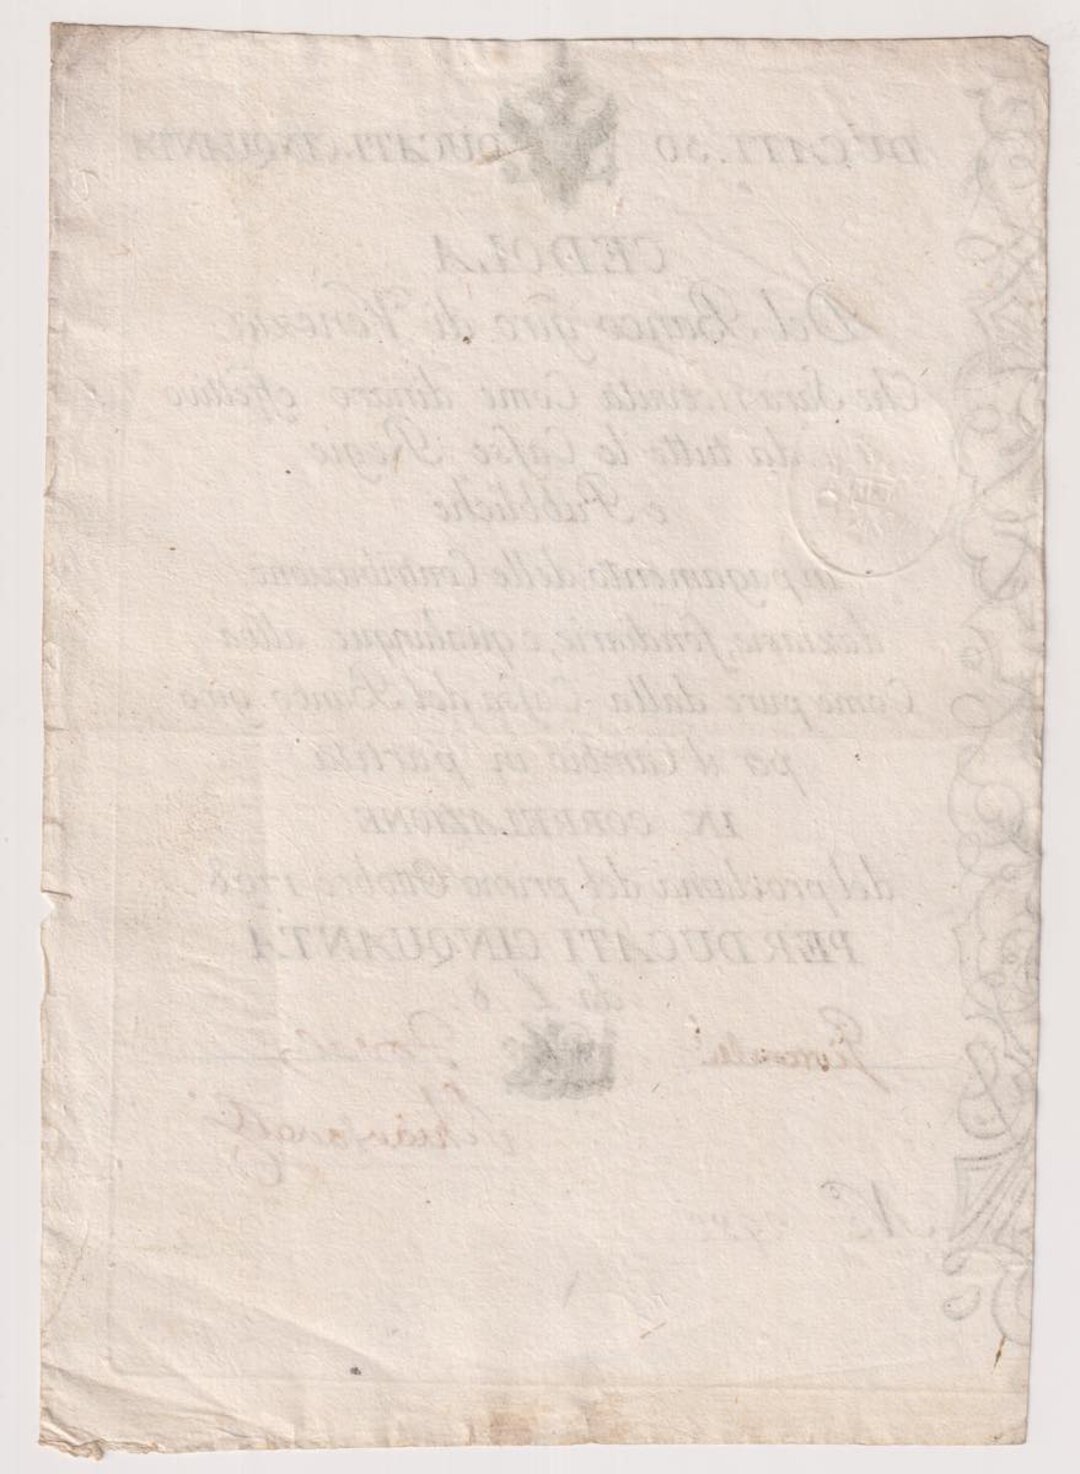 DUCATI.50 DUCATI CINQUANTA
CEDOLA
Del Banco giro di Venezia
Che Sara ricevuta Come dinaro effettivo
da tutte le Casse Regie
e Pubbliche
in pagamento delle Contribuzione
daziarie, fondiarie, e qualunque altra
Come pure dalla Cassa del Banco giro
per il Cambio in partita
IN CORRELAZIONE
del proclama del primo Ottobre 1798
PER DUCATI CINQUANTA
da L 8
N.